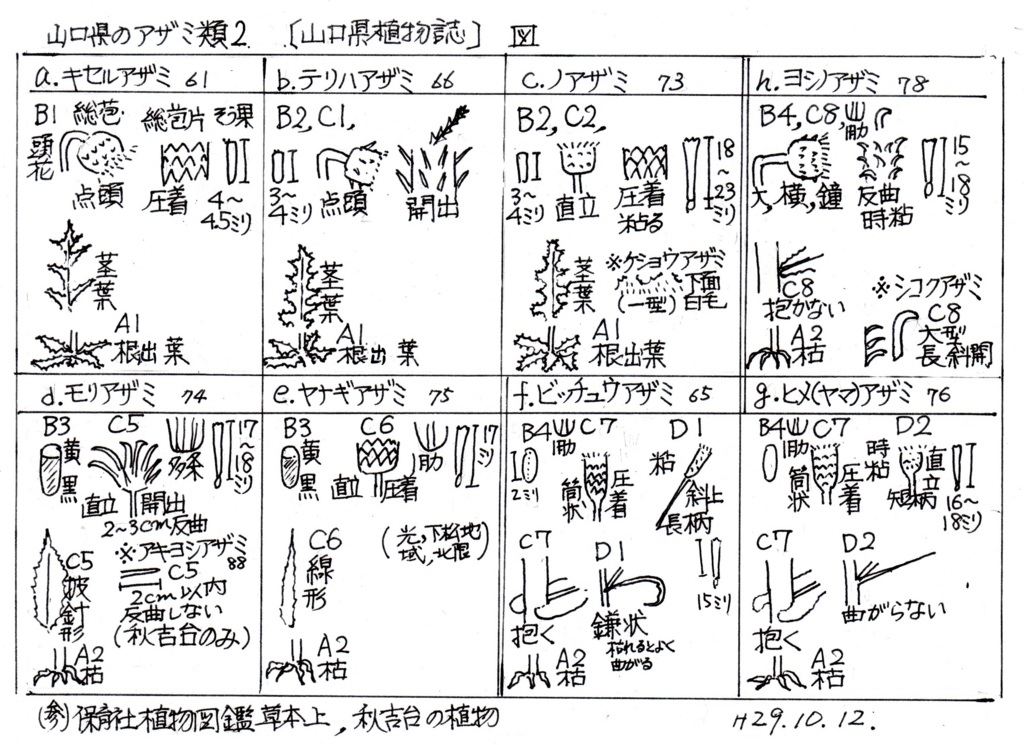 山口県のアザミ類2. 〔山口県植物誌〕 図
a.キセルアザミ 61
B1 総苞 総苞片 そう果
頭花
点頭 圧着 4～4.5ミリ
茎葉
A1
根出葉
b.テリハアザミ 66
B2,C1,
3～4ミリ 点頭 開出
茎葉
A1
根出葉
c.ノアザミ 73
B2,C2,
3～4ミリ 直立 圧着 粘る 18～23ミリ
茎葉
※ケショウアザミ
(一型) 下面白毛
A1
根出葉
h.ヨシノアザミ 78
B4,C8, 肋
15～18ミリ
大,横,鐘 反曲 時粘
C8
抱かない
※シコクアザミ
C8
大型
長斜開
A2
枯
d.モリアザミ 74
B3 C5
黄 黒 多条 17～18ミリ
直立 開出
2～3cm反曲
※アキヨシアザミ 88
C5
2cm以内
反曲しない
(秋吉台のみ)
C5
披針形
A2
枯
e.ヤナギアザミ 75
B3 C6
黄 黒 肋 17ミリ
直立 圧着
C6
線形
(光,下松地
域,北限)
A2
枯
f.ビッチュウアザミ 65
B4 肋 C7 D1
2ミリ 筒状 圧着 粘 斜上
長柄
C7 D1
15ミリ
抱く 鎌状
枯れるとよく
曲がる
A2
枯
g.ヒメ(ヤマ)アザミ 76
B4 肋 C7 時粘 D2
筒状 圧着 直立 短柄
16～18ミリ
C7 D2
曲がらない
抱く
A2
枯
(参)保育社植物図鑑草本上,秋吉台の植物
H29.10.12.